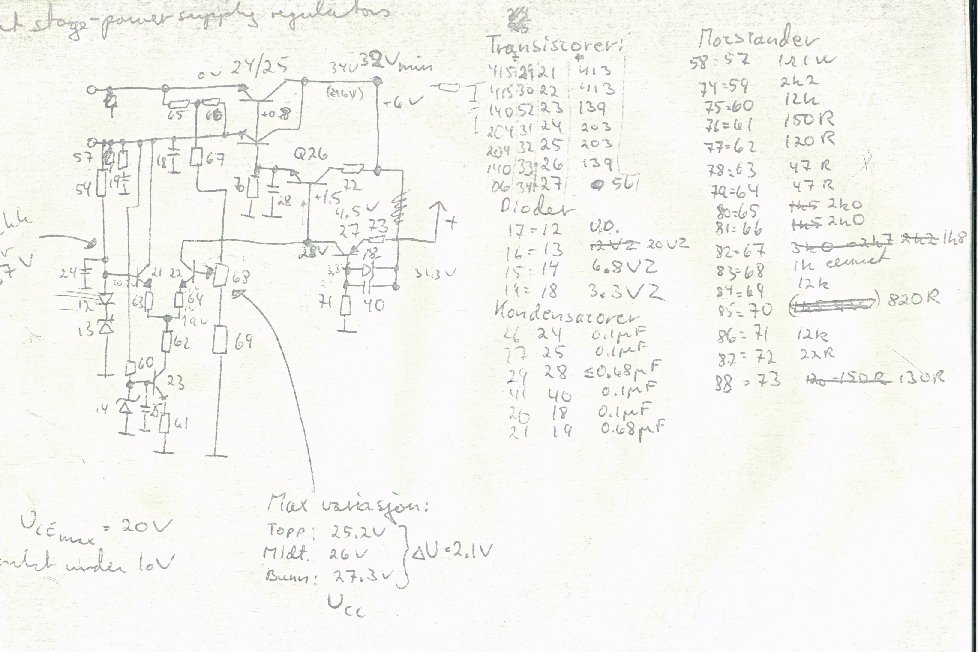 stage-power supply regulators
0V 24/25 34V 32V min
(26V)
+6V
65 66 +0.8
57 18 67 Q26
59 19 28 22
+1.5
4.5V
27 73
7V 28V 31.3V
24 21 22 68
12 63 64 71 40
13 62 69
60 23
14 61
Transistorer:
415 29 21 413
415 30 22 413
140 52 23 139
204 31 24 203
204 32 25 203
140 33 26 139
06 34 27 56
Dioder
17=12 U.D.
16=13 12VZ 20VZ
15=14 6.8VZ
19=18 3.3VZ
Kondensatorer
26 24 0.1µF
27 25 0.1µF
29 28 ≤0.68µF
41 40 0.1µF
20 18 0.1µF
21 19 0.68µF
Motstander
58=57 1R 1W
74=59 2k2
75=60 12k
76=61 150R
77=62 120R
78=63 47R
79=64 47R
80=65 1k5 2k0
81=66 1k5 2k0
82=67 3k0 2k7 2k2 1k8
83=68 1k cermet
84=69 12k
85=70 820R
86=71 12k
87=72 22R
88=73 120-150R 130R
Max variasjon:
Topp: 25.2V
Midt: 26V
Bunn: 27.3V
ΔU=2.1V
Ucc
UCEmax = 20V
under 10V